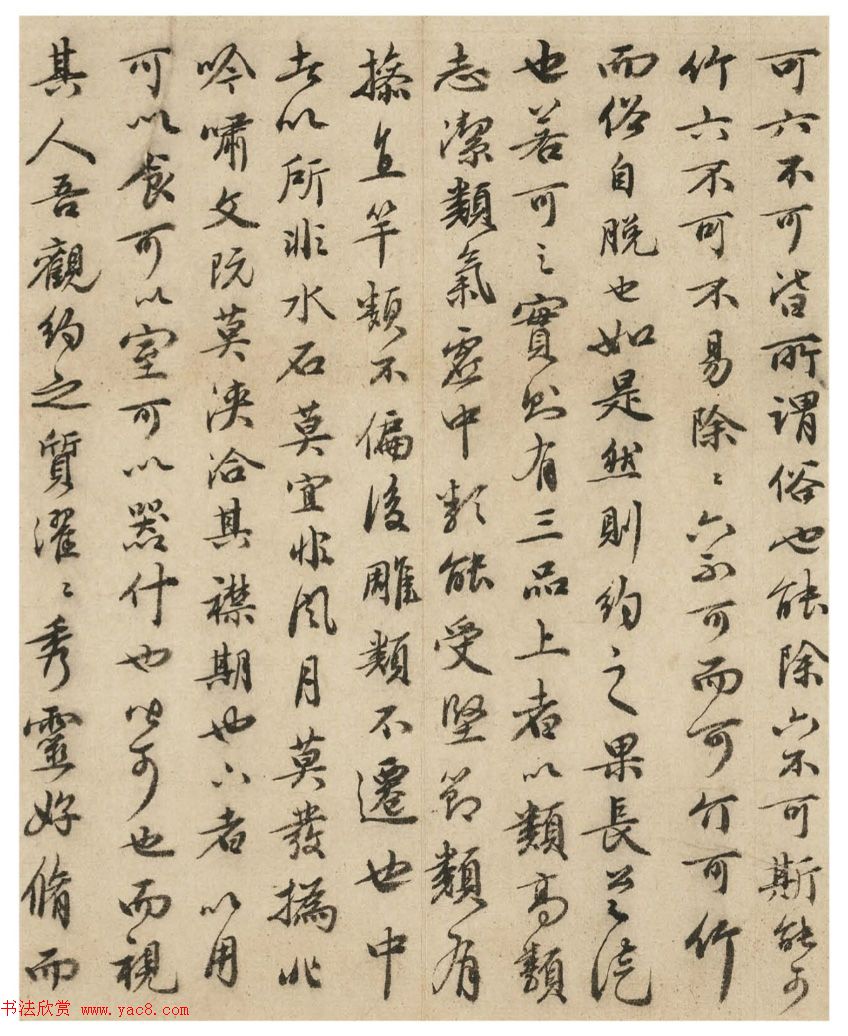 可六不可皆所謂俗也能除六不可斯能可
竹六不可不易除〻六不可而可竹可竹
而俗自脱也如是然則約之果長者
也若可之實則有三品上者以類高類
志潔類氣虛中類能受堅節類有
操直竿類不偏後雕類不遷也中
者以所非水石莫宜非風月莫發撝非
吟嘯文阮莫浹洽其襟期也下者以用
可以食可以室可以器什也皆可也而視
其人吾觀約之質濯〻秀靈好脩而
书法欣赏 www.yac8.com